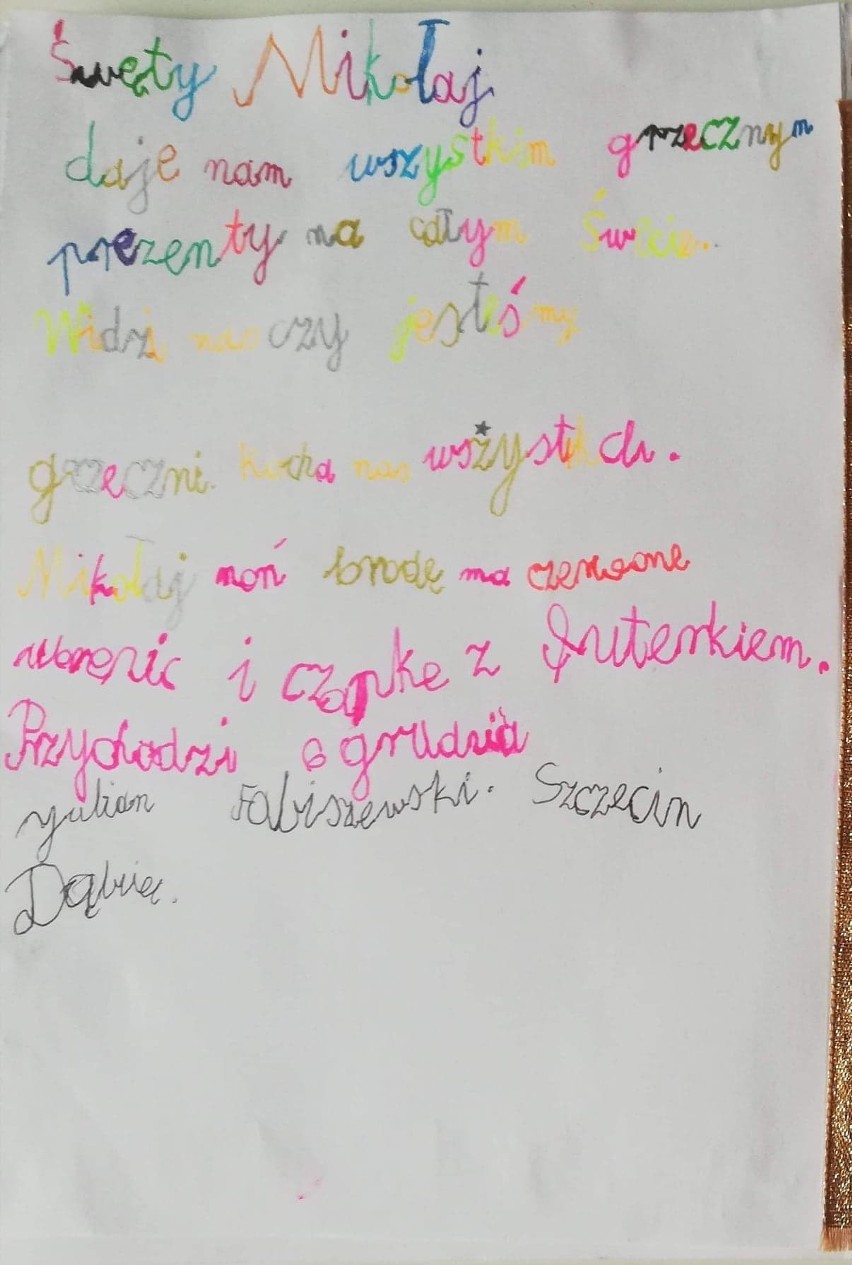 Swęty Mikołaj
daje nam wszystkim grzecznym
prezenty na całym świecie..
Widzi nas czy jesteśmy
grzeczni. kocha nas wszystkich.
Mikołaj moń brodę ma czerwone
ubrenie i czapke z futerkiem.
Przychodzi 6 grudnia
yulian Fabiszewski. Szczecin
Dąbie.